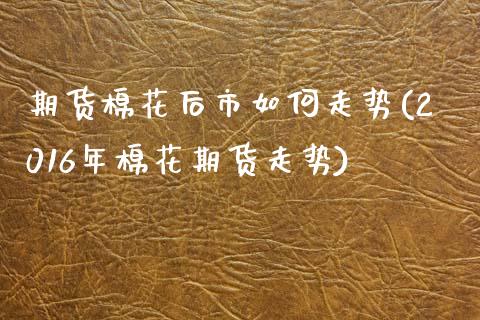 期货棉花后市如何走势(2
016年棉花期货走势)